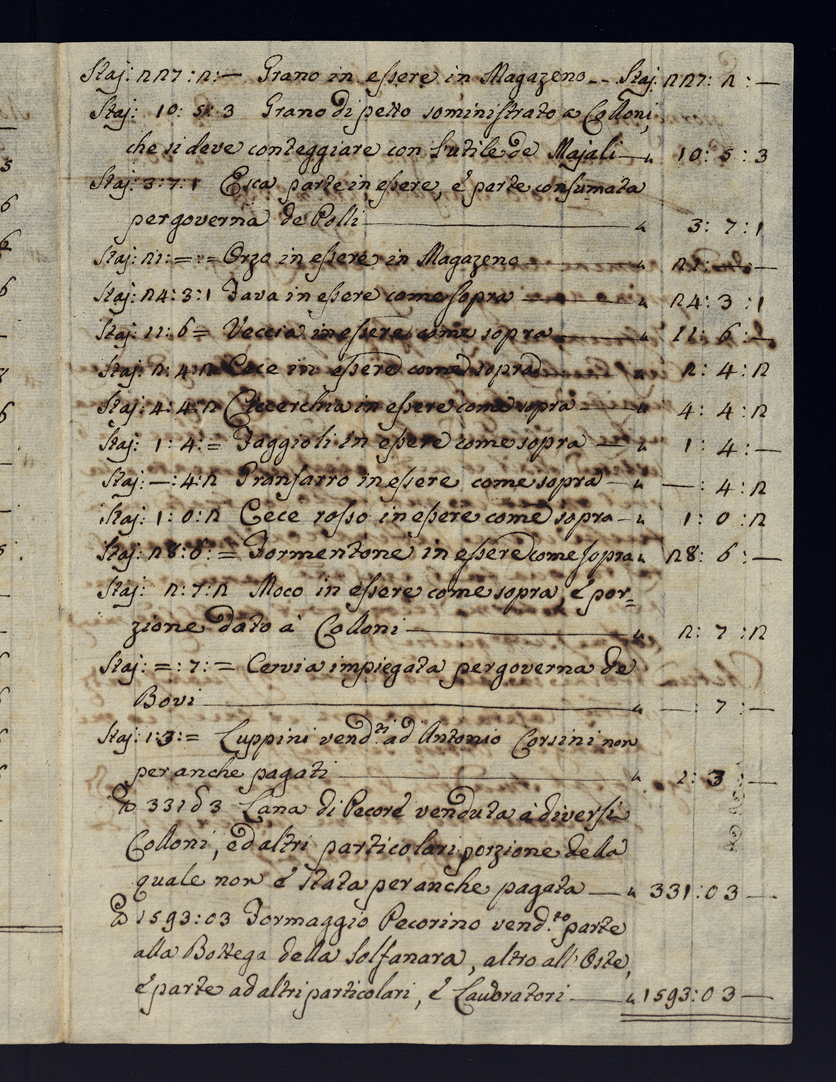 Staj: 227:2:— Grano in essere in Magazeno -- Staj: 227: 2 : —
Staj: 10: 5: 3 Grano di petto sominiſtrato a Colloni,
che si deve conteggiare con l'utile de Majali — „ 10: 5 : 3
Staj: 3:7:1 Esca parte in eſsere, é parte conſumata
per governa de Polli — „ 3: 7 : 1
Staj: 21:=:= Orzo in eſsere in Magazeno — „ 21: — : —
Staj: 24:3:1 Fava in eſsere come sopra — „ 24: 3 : 1
Staj: 11:6= Veccia in eſsere come sopra — „ 11: 6 : —
Staj: 2:4:2 Cece in eſsere come sopra — „ 2: 4 : 2
Staj: 4:4:2 Cicerchia in eſsere come sopra — „ 4: 4 : 2
Staj: 1:4:= Faggioli in eſsere come sopra — „ 1: 4: —
Staj: —:4:2 Granfarro in eſsere come sopra — „ — : 4:2
Staj: 1:0:2 Cece roſso in eſsere come sopra — „ 1: 0 :2
Staj: 28:6:= Formentone in eſsere come sopra „ 28: 6 : —
Staj: 2:7:2 Moco in eſsere come sopra, é por=
zione dato à Colloni — „ 2: 7 :2
Staj: =:7:= Cervia impiegata per governa de
Bovi — „ — : 7 : —
Staj: 1:3:= Luppini vend.ti ad Antonio Corsini non
per anche pagati — „ 1: 3 : —
331 δ 3 Lana di Pecore venduta à diversi
Colloni, ed altri particolari porzione della
quale non é Stata per anche pagata — „ 331:03 —
1593:03 Formaggio Pecorino vend.to parte
alla Bottega della Solfanara, altro all'Oste,
é parte ad altri particolari, é Lavoratori — „ 1593:03 —